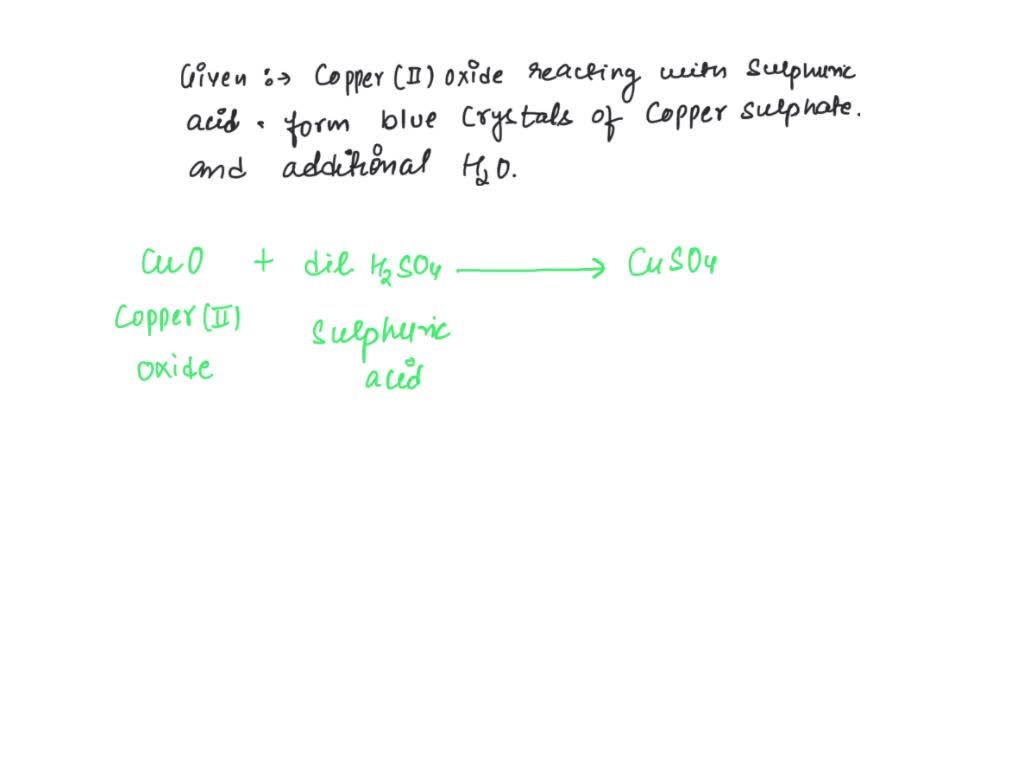 Given :→ Copper (II) oxide reacting with Sulphuric
acid . form blue Crystals of Copper sulphate.
and additional H₂O.
CuO + dil H₂SO₄ ⟶ CuSO₄
Copper (II) Sulphuric
oxide acid